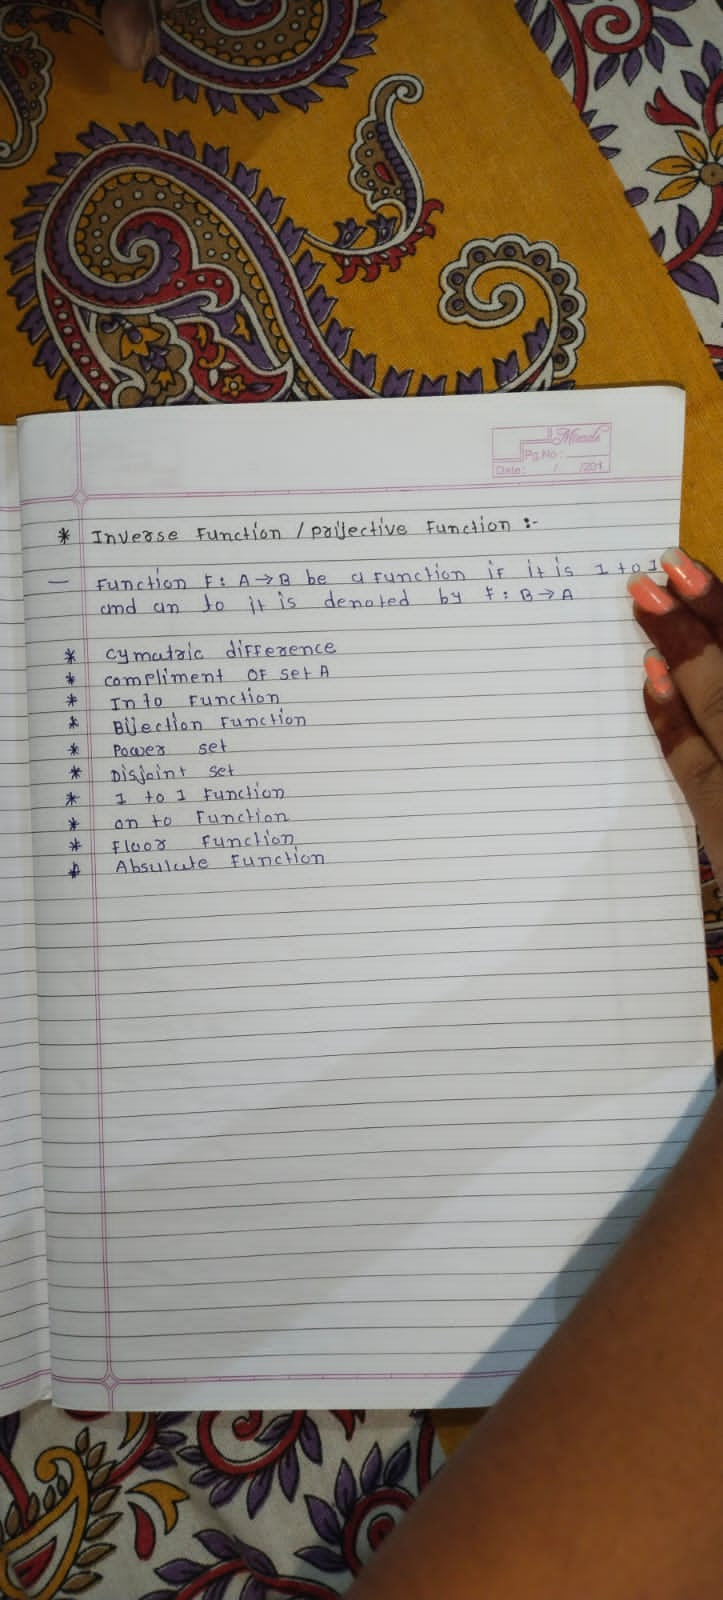 Miracle
Pg.No:
Date: / /201
* Inverse Function / Prijective Function :-
— Function F: A → B be a function if it is 1 to 1
and an to it is denoted by f: B → A
* Cymatric difference
* Compliment OF set A
* In to Function
* Bijection Function
* Power set
* Disjoint set
* 1 to 1 Function
* on to Function
* Floor Function
* Absulute Function